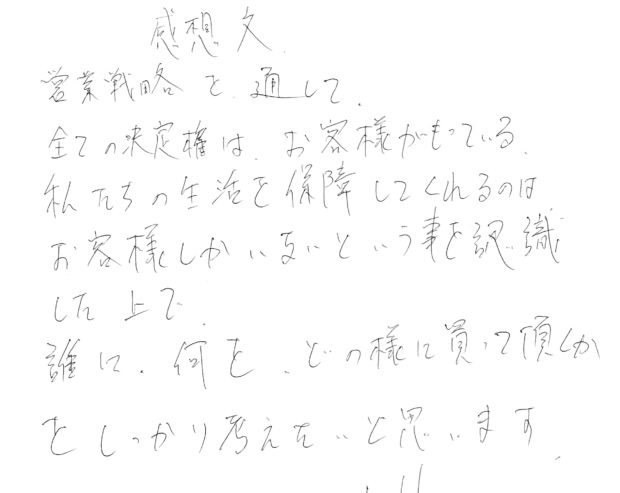 感想文
営業戦略を通して、
全ての決定権は、お客様がもっている。
私たちの生活を保障してくれるのは
お客様しかいないという事を認識
した上で、
誰に、何を、どの様に買って頂くか
をしっかり考えたいと思います。